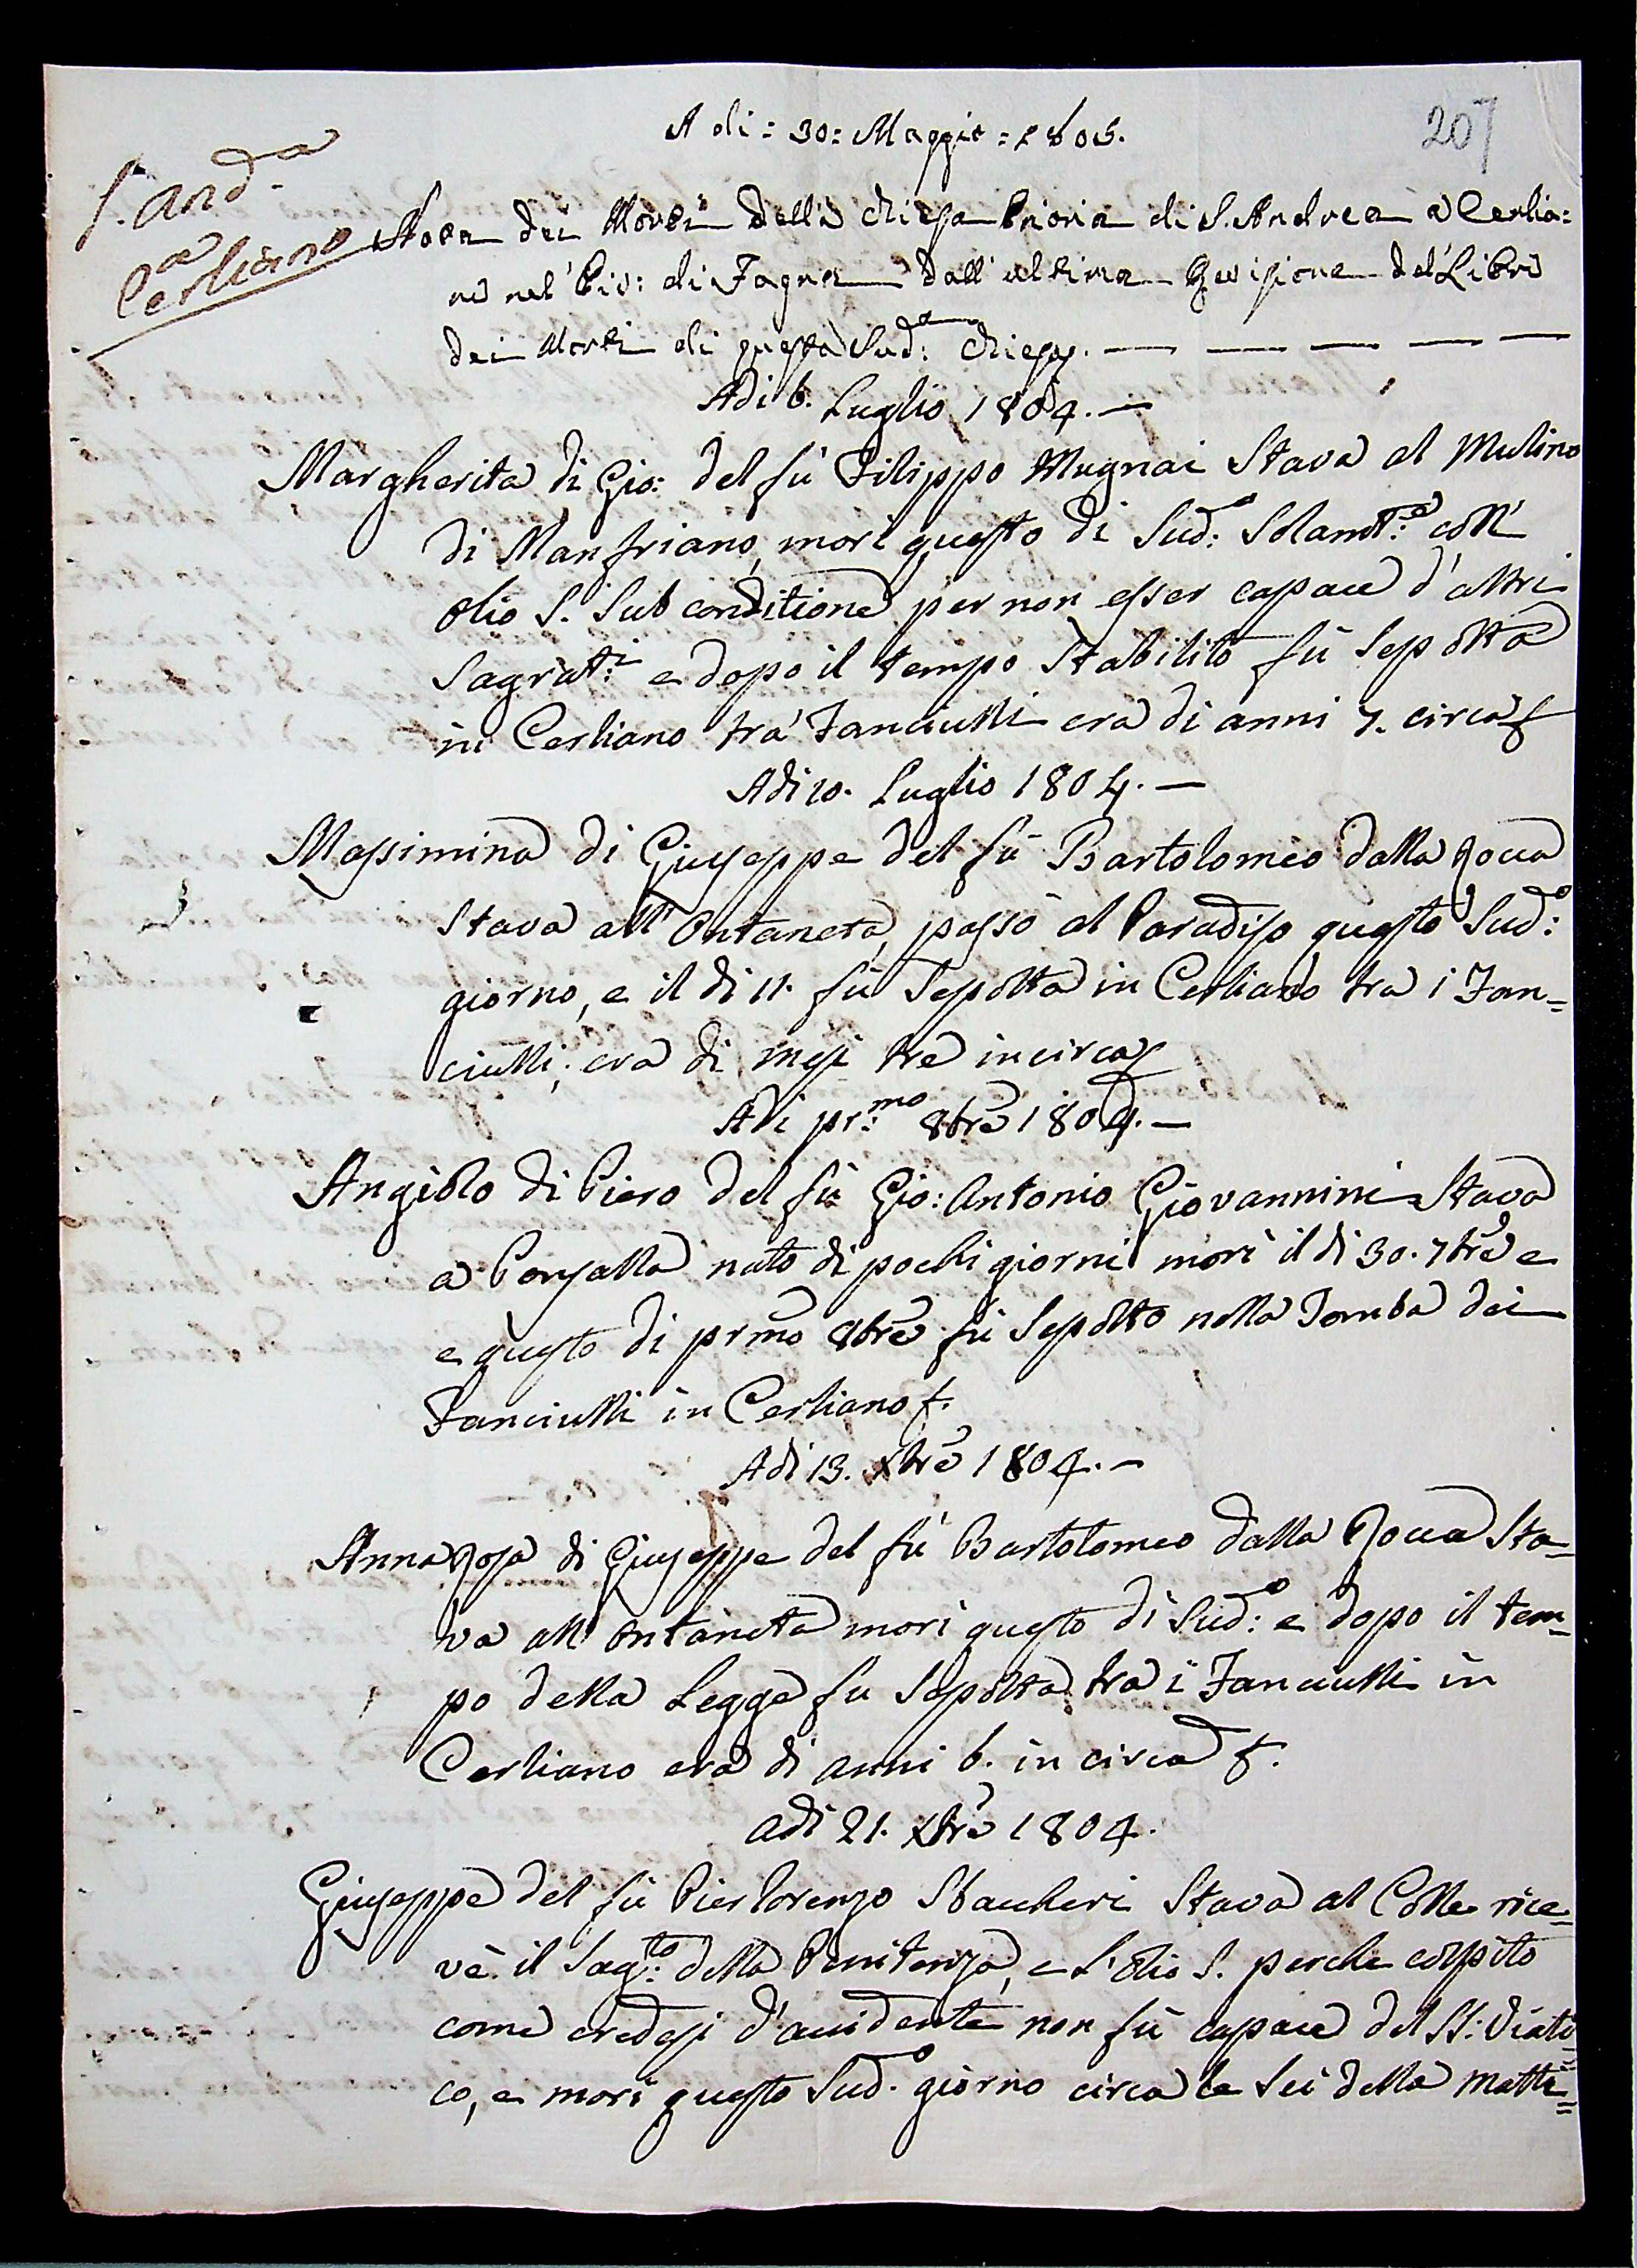 207
A di: 30: Maggio: 1805.
S. And.a
a Cerliano
Nota dei Morti della Chiesa Prioria di S. Andrea a Cerlia:
no nel Piv: di Fagna dall'ultima Revisione del Libro
dei Morti di questa Sud.a Chiesa. — — — — —
Adi 6. Luglio 1804. —
Margherita di Gio: del fù Filippo Mugnai Stava al Mulino
di Manfriano, morì questo dì Sud.o Solam.te coll'
olio S. Sub conditione per non esser capace d'altri
Sagrat.i e dopo il tempo Stabilito fù Sepolta
in Cerliano trà Fanciulli era di anni 7. circa
Adi 10. Luglio 1804. —
Massimina di Giuseppe del fù Bartolomeo dalla Rocca
Stava all'Ontaneta, passò al Paradiso questo Sud.o
giorno, e il dì 11. fù Sepolta in Cerliano tra i Fan=
ciulli, era di mesi tre incirca
Adi pr.mo 8bre 1804. —
Angiolo di Piero del fù Gio: Antonio Giovannini Stava
a nato di pochi giorni morì il dì 30. 7bre e
e questo dì prmo 8bre fù Sepolto nella Tomba dei
Fanciulli in Cerliano
Adi 13. Xbre 1804. —
Anna Rosa di Giuseppe del fù Bartolomeo dalla Rocca Sta=
va all'Ontaneta morì questo dì Sud.o e dopo il tem=
po della Legge fu Sepolta tra i Fanciulli in
Cerliano era di anni 6. in circa
adi 21. Xbre 1804.
Giuseppe del fù Pier Lorenzo Sbaccheri Stava al Colle rice=
vè il Sag.to della Penitenza, e l'olio S. perche colpito
come credesi d'accidente non fù capace del SS: Viati=
co, e morì questo Sud.o giorno circa le Sei della Matti=